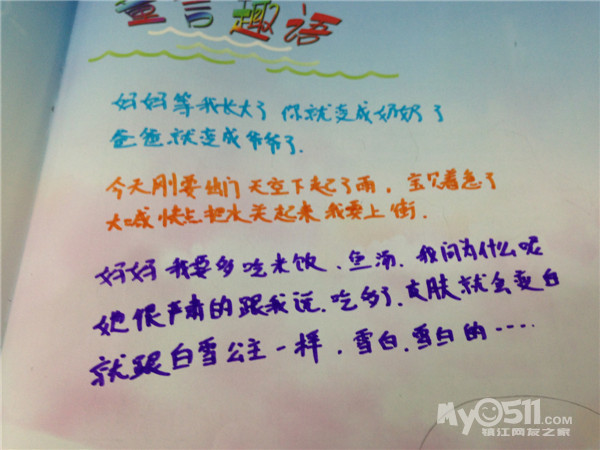 童言趣语
妈妈等我长大了 你就变成奶奶了
爸爸就变成爷爷了.
今天刚要出门 天空下起了雨，宝贝着急了
大喊 快点把水关起来 我要上街.
妈妈 我要多吃米饭、鱼汤、我问为什么呢
她很严肃的跟我说.吃多了.皮肤就会变白
就跟白雪公主一样、雪白、雪白的……
My0511.COM
镇江网友之家